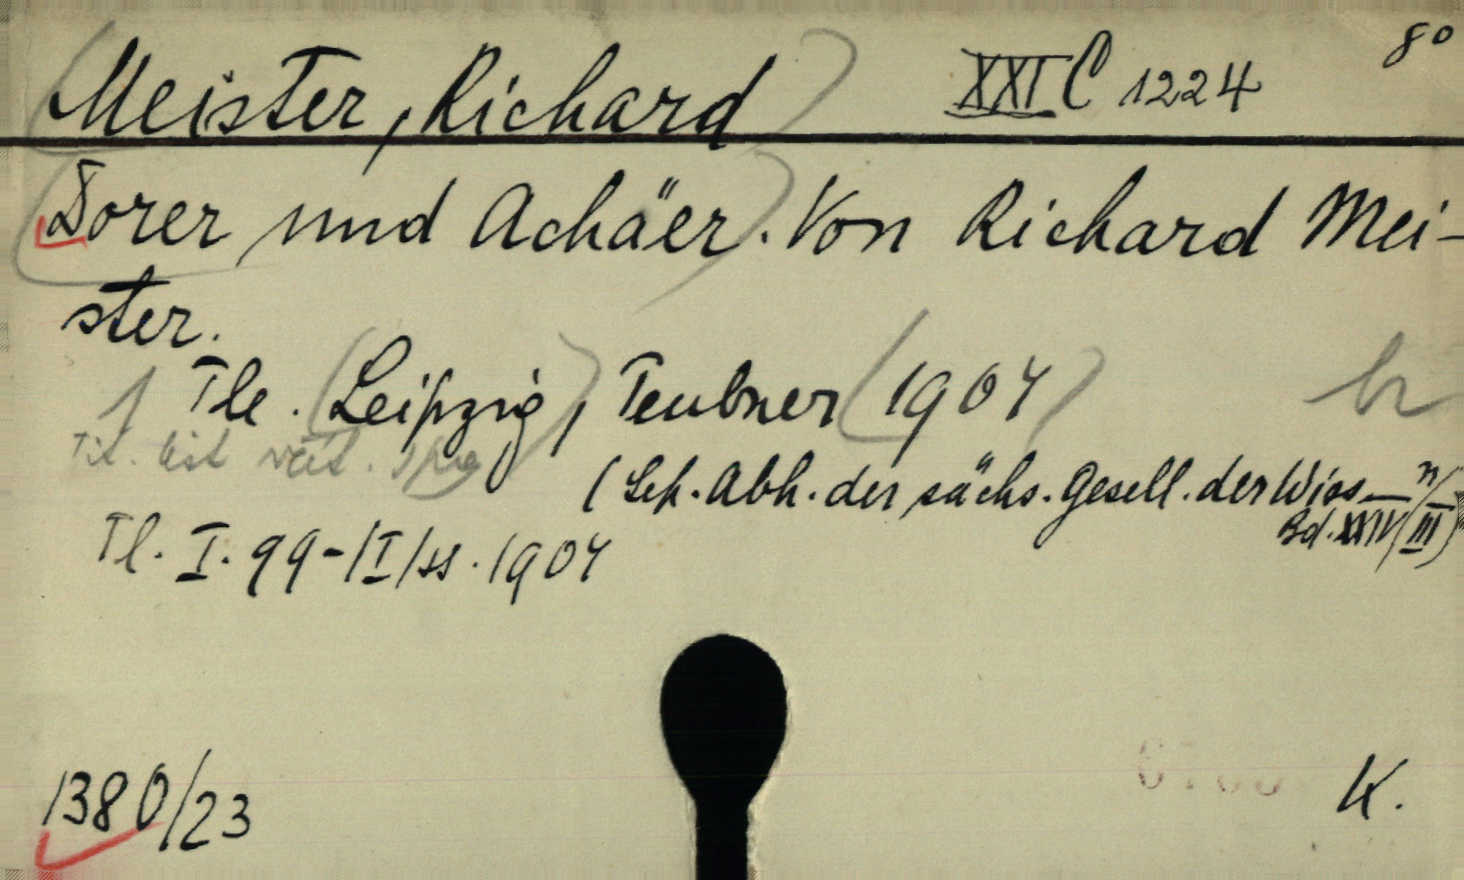 Meister, Richard XXI C 1224 8°
Dorer und Achäer. Von Richard Mei-
ster.
1 Tle. Leipzig, Teubner 1904
(Sep. Abh. der sächs. Gesell. der Wiss.
Bd. XXIV/III)
Tl. I. 99-/I/ss. 1904
1380/23
K.